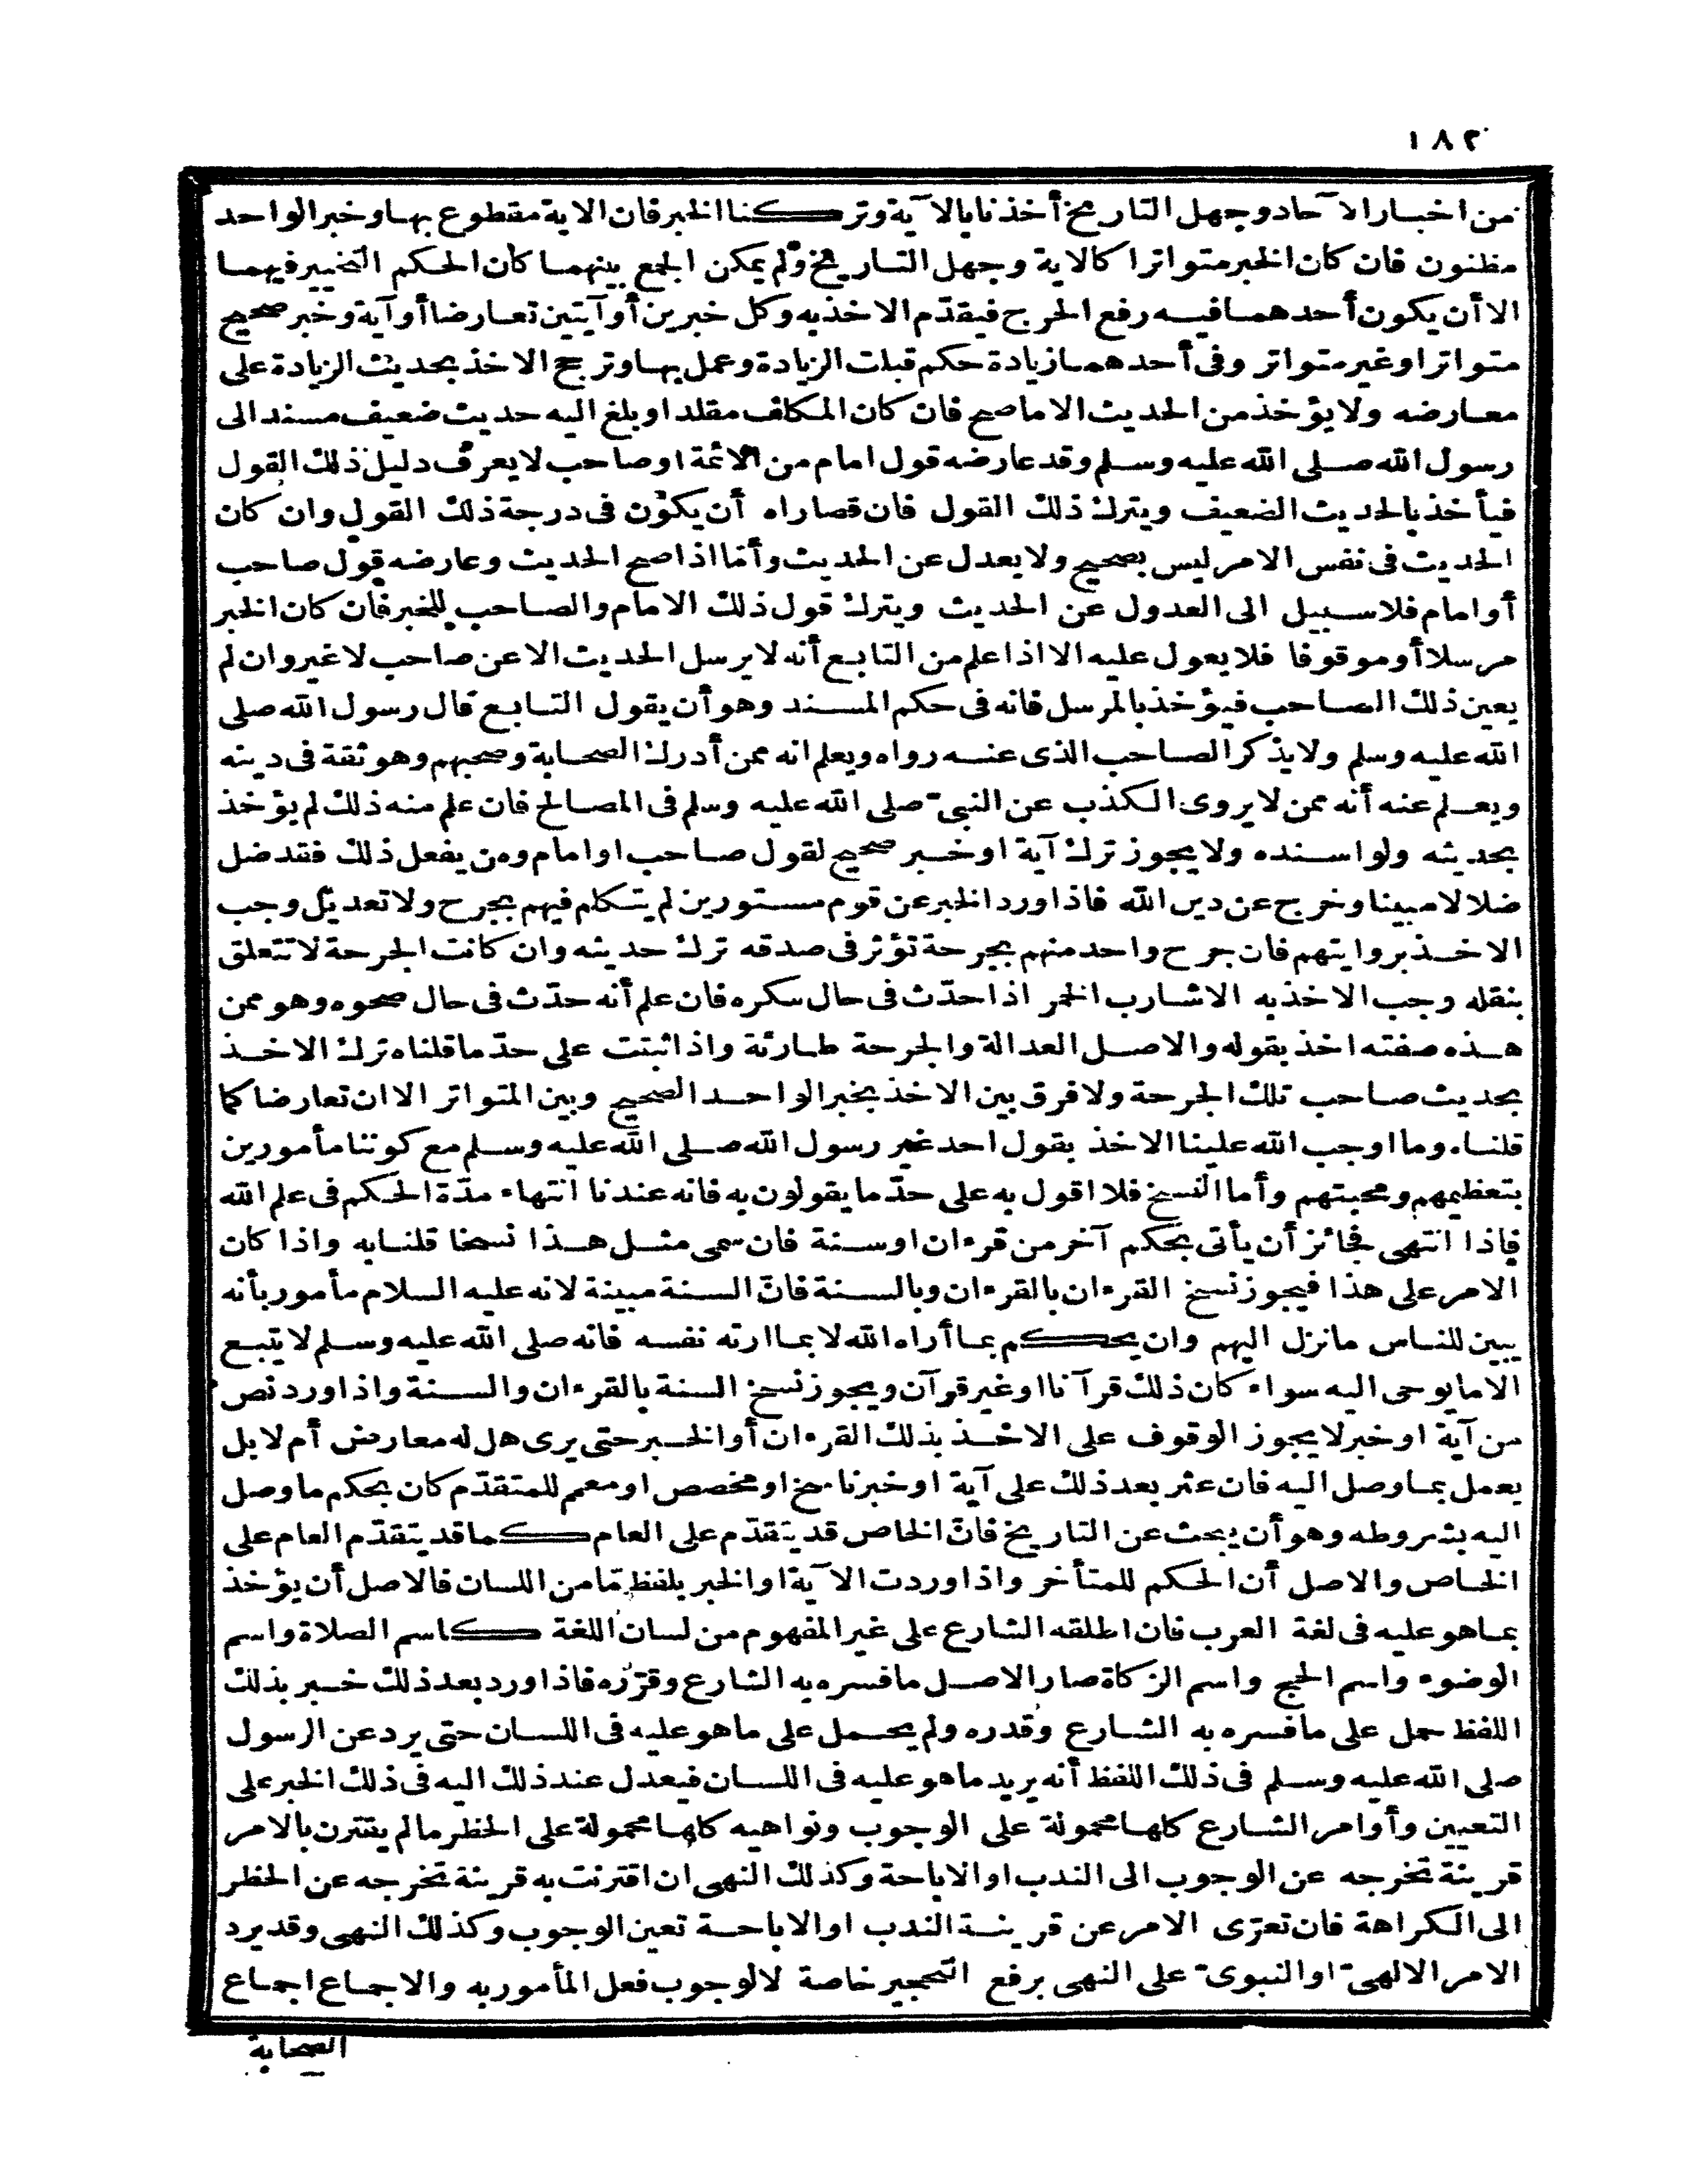 ١٨٢
من اخبار الآحاد وجهل التاريخ أخذنا بالآية وتركنا الخبر فان الاية مقطوع بها وخبر الواحد
مظنون فان كان الخبر متواترا كالاية وجهل التاريخ ولم يمكن الجمع بينهما كان الحكم التخيير فيهما
الا أن يكون أحدهما فيه رفع الحرج فيقدّم الاخذ به وكل خبرين أو آيتين تعارضا أو آية وخبر صحيح
متواتر او غير متواتر وفى أحدهما زيادة حكم قبلت الزيادة وعمل بها وترجح الاخذ بحديث الزيادة على
معارضه ولا يؤخذ من الحديث الا ما صح فان كان المكلف مقلدا وبلغ اليه حديث ضعيف مسند الى
رسول الله صلى الله عليه وسلم وقد عارضه قول امام من الائمة او صاحب لا يعرف دليل ذلك القول
فيأخذ بالحديث الضعيف ويترك ذلك القول فان قصاراه أن يكون فى درجة ذلك القول وان كان
الحديث فى نفس الامر ليس بصحيح ولا يعدل عن الحديث وأمّا اذا صح الحديث وعارضه قول صاحب
أو امام فلا سبيل الى العدول عن الحديث ويترك قول ذلك الامام والصاحب للخبر فان كان الخبر
مرسلا أو موقوفا فلا يعول عليه الا اذا علم من التابع أنه لا يرسل الحديث الا عن صاحب لا غير وان لم
يعين ذلك الصاحب فيؤخذ بالمرسل فانه فى حكم المسند وهو أن يقول التابع قال رسول الله صلى
الله عليه وسلم ولا يذكر الصاحب الذى عنه رواه ويعلم انه ممن أدرك الصحابة وصحبهم وهو ثقة فى دينه
ويعلم عنه أنه ممن لا يروى الكذب عن النبىّ صلى الله عليه وسلم فى المصالح فان علم منه ذلك لم يؤخذ
بحديثه ولو اسنده ولا يجوز ترك آية او خبر صحيح لقول صاحب او امام ومن يفعل ذلك فقد ضل
ضلالا مبينا وخرج عن دين الله فاذا ورد الخبر عن قوم مستورين لم يتكلم فيهم بجرح ولا تعديل وجب
الاخذ بروايتهم فان جرح واحد منهم بجرحة تؤثر فى صدقه ترك حديثه وان كانت الجرحة لا تتعلق
بنقله وجب الاخذ به الا شارب الخمر اذا حدّث فى حال سكره فان علم أنه حدّث فى حال صحوه وهو ممن
هذه صفته اخذ بقوله والاصل العدالة والجرحة طارئة واذا ثبتت على حدّ ما قلناه ترك الاخذ
بحديث صاحب تلك الجرحة ولا فرق بين الاخذ بخبر الواحد الصحيح وبين المتواتر الا ان تعارضا كما
قلناء وما اوجب الله علينا الاخذ بقول احد غير رسول الله صلى الله عليه وسلم مع كوننا مأمورين
بتعظيمهم ومحبتهم وأما النسخ فلا اقول به على حدّ ما يقولون به فانه عندنا انتهاء مدّة الحكم فى علم الله
فاذا انتهى فجائز أن يأتى بحكم آخر من قرءان او سنة فان سمى مثل هذا نسخا قلنا به واذا كان
الامر على هذا فيجوز نسخ القرءان بالقرءان وبالسنة فانّ السنة مبينة لانه عليه السلام مأمور بأنه
يبين للناس ما نزل اليهم وان يحكم بما أراه الله لا بما ارته نفسه فانه صلى الله عليه وسلم لا يتبع
الا ما يوحى اليه سواء كان ذلك قرآنا او غير قرآن ويجوز نسخ السنة بالقرءان والسنة واذا ورد نص
من آية او خبر لا يجوز الوقوف على الاخذ بذلك القرءان أو الخبر حتى يرى هل له معارض أم لا بل
يعمل بما وصل اليه فان عثر بعد ذلك على آية او خبر ناسخ او مخصص او معمم للمتقدّم كان بحكم ما وصل
اليه بشروطه وهو أن يبحث عن التاريخ فانّ الخاص قد يتقدّم على العام كما قد يتقدّم العام على
الخاص والاصل أن الحكم للمتأخر واذا وردت الآية او الخبر بلفظ مّا من اللسان فالاصل أن يؤخذ
بما هو عليه فى لغة العرب فان اطلقه الشارع على غير المفهوم من لسان اللغة كاسم الصلاة واسم
الوضوء واسم الحج واسم الزكاة صار الاصل ما فسره به الشارع وقرّره فاذا ورد بعد ذلك خبر بذلك
اللفظ حمل على ما فسره به الشارع وقدره ولم يحمل على ما هو عليه فى اللسان حتى يرد عن الرسول
صلى الله عليه وسلم فى ذلك اللفظ أنه يريد ما هو عليه فى اللسان فيعدل عند ذلك اليه فى ذلك الخبر على
التعيين وأوامر الشارع كلها محمولة على الوجوب ونواهيه كلها محمولة على الحظر ما لم يقترن بالامر
قرينة تخرجه عن الوجوب الى الندب او الاباحة وكذلك النهى ان اقترنت به قرينة تخرجه عن الحظر
الى الكراهة فان تعرّى الامر عن قرينة الندب او الاباحة تعين الوجوب وكذلك النهى وقد يرد
الامر الالهىّ او النبوىّ على النهى برفع التحجير خاصة لا لوجوب فعل المأمور به والاجماع اجماع
الصحابة